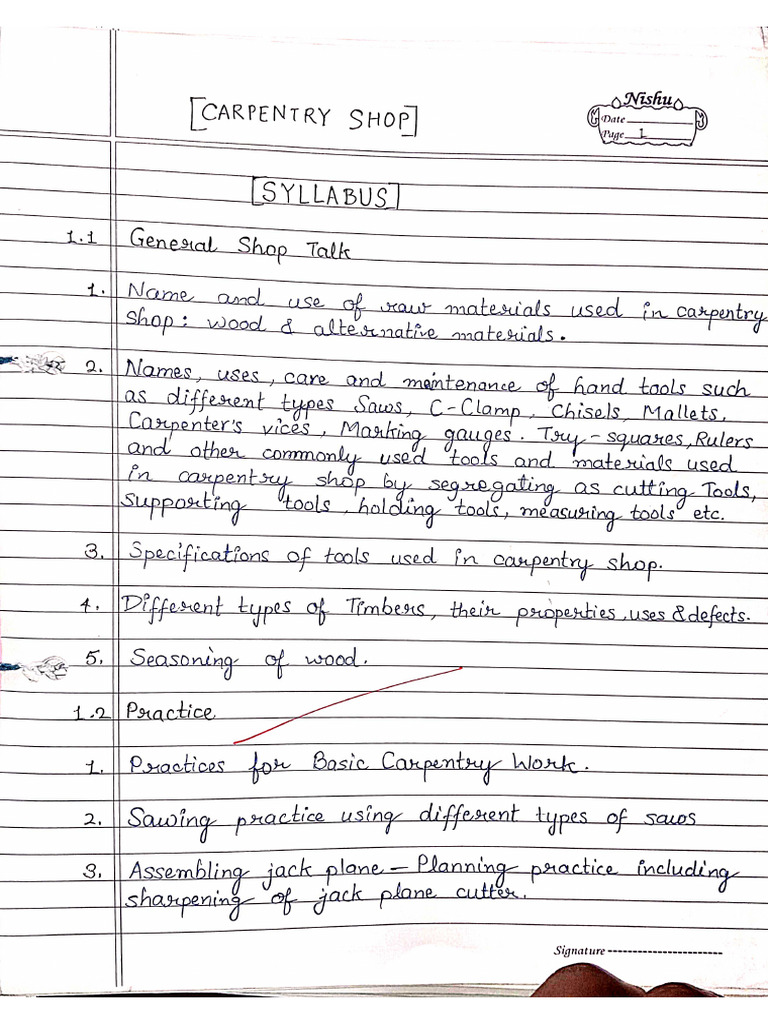 Nishu
[CARPENTRY SHOP]
Date
Page 1
[SYLLABUS]
1.1 General Shop Talk
1. Name and use of raw materials used in carpentry
shop: wood & alternative materials.
2. Names, uses, care and maintenance of hand tools such
as different types Saws, C-Clamp, Chisels, Mallets,
Carpenter's vices, Marking gauges. Try-squares, Rulers
and other commonly used tools and materials used
in carpentry shop by segregating as cutting Tools,
supporting tools, holding tools, measuring tools etc.
3. Specifications of tools used in carpentry shop.
4. Different types of Timbers, their properties, uses & defects.
5. Seasoning of wood.
1.2 Practice
1. Practices for Basic Carpentry Work.
2. Sawing practice using different types of saws
3. Assembling jack plane - Planning practice including
sharpening of jack plane cutter.
Signature